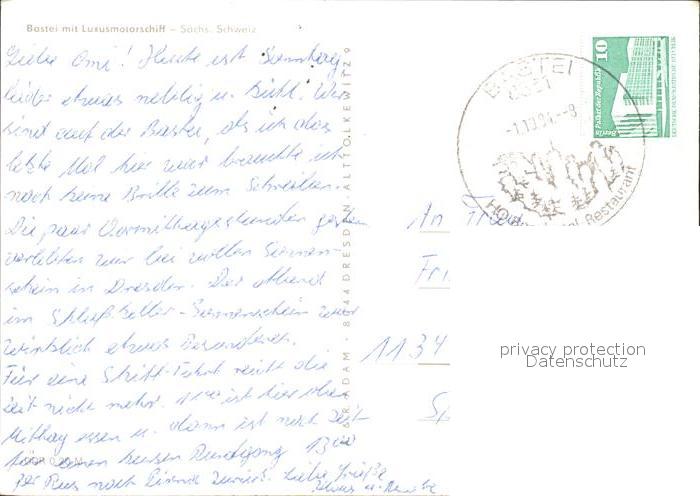 Bastei mit Luxusmotorschiff – Sächs. Schweiz
Liebe Omi! Heute ist Sonntag
leider etwas neblig u. kühl. Wir
sind auf der Bastei, als ich das
letzte Mal hier war brauchte ich
noch keine Brille zum Schreiben.
Die paar Vormittagsstunden gestern
verlebten wir bei vollen Sonnen-
schein in Dresden. Der Abend
im Schloß
war
wirklich etwas besonderes.
Für eine Schiff-Fahrt reicht die
Zeit nicht mehr. 11°° ist hier oben
Mittag essen u. dann ist noch Zeit
für einen kurzen Rundgang 13°°
Bus nach
zurück. Liebe Grüße
u.
ADAM · 8044 DRESDEN-ALTTOLKEWITZ 9
BASTEI
8351
-8
HO
Hotel-Restaurant
10
Palast der Republik
Berlin
An Frau
1134
privacy protection
Datenschutz